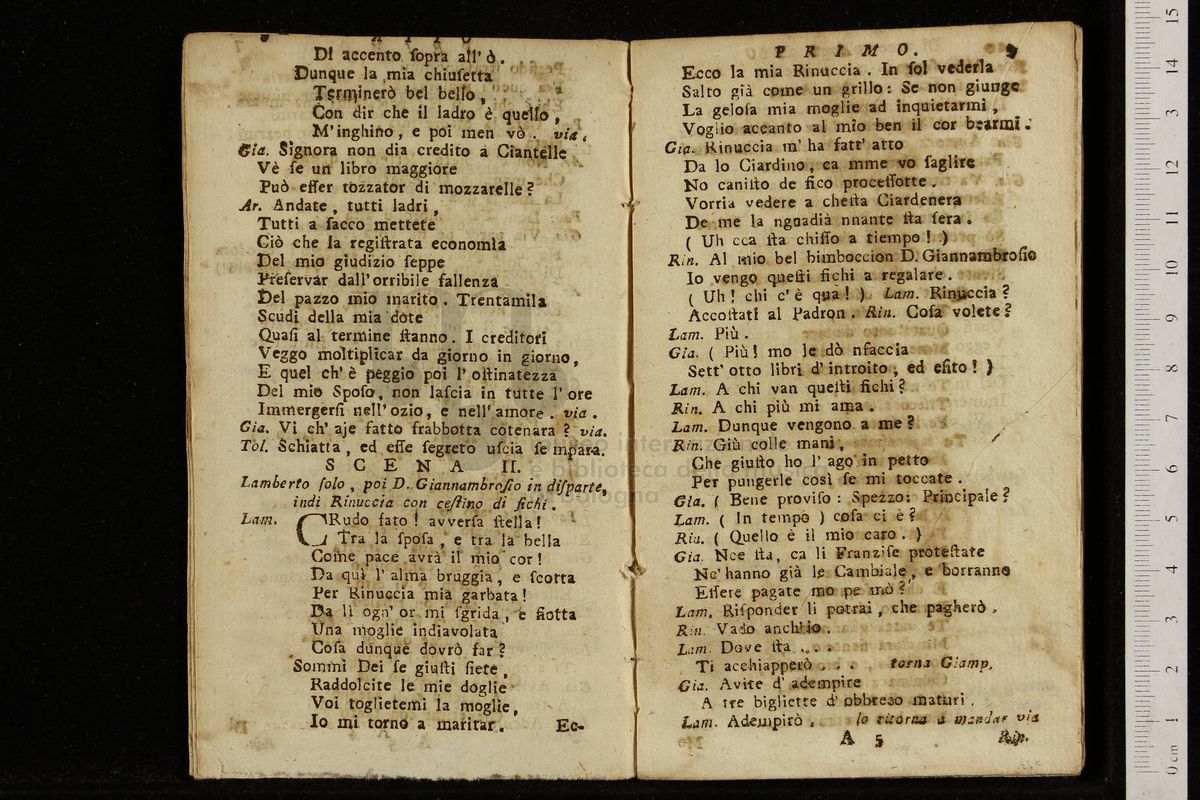 ATTO
Di accento ſopra all' ò.
Dunque la mia chiuſetta
Terminerò bel bello,
Con dir che il ladro è quello,
M'inghino, e poi men vò. via.
Gia. Signora non dia credito a Ciantelle
Vè ſe un libro maggiore
Può eſſer tozzator di mozzarelle?
Ar. Andate, tutti ladri,
Tutti a ſacco mettete
Ciò che la regiſtrata economìa
Del mio giudizio ſeppe
Preſervar dall' orribile fallenza
Del pazzo mio marito. Trentamila
Scudi della mia dote
Quaſi al termine ſtanno. I creditori
Veggo moltiplicar da giorno in giorno,
E quel ch' è peggio poi l' oſtinatezza
Del mio Spoſo, non laſcia in tutte l' ore
Immergerſi nell' ozio, e nell' amore. via.
Gia. Vi ch' aje fatto frabbotta cotenara? via.
Tol. Schiatta, ed eſſe ſegreto uſcia ſe mpara.
SCENA II.
Lamberto ſolo, poi D. Giannambroſio in diſparte,
indi Rinuccia con ceſtino di fichi.
Lam. CRudo fato! avverſa ſtella!
Tra la ſpoſa, e tra la bella
Come pace avrà il mio cor!
Da quì l' alma bruggia, e ſcotta
Per Rinuccia mia garbata!
Da lì ogn' or mi ſgrida, e fiotta
Una moglie indiavolata
Coſa dunque dovrò far?
Sommi Dei ſe giuſti ſiete,
Raddolcite le mie doglie
Voi toglietemi la moglie,
Io mi torno a maritar. Ec-
PRIMO. 9
Ecco la mia Rinuccia. In ſol vederla
Salto già come un grillo: Se non giunge
La geloſa mia moglie ad inquietarmi,
Voglio accanto al mio ben il cor bearmi.
Gia. Rinuccia m' ha fatt' atto
Da lo Ciardino, ca mme vo ſaglire
No caniſto de fico proceſſotte.
Vorria vedere a cheſta Ciardenera
De me la nguadià nnante ſta ſera.
( Uh cca ſta chiſſo a tiempo! )
Rin. Al mio bel bimboccion D. Giannambroſio
Io vengo queſti fichi a regalare.
( Uh! chi c' è quà! ) Lam. Rinuccia?
Accoſtati al Padron. Rin. Coſa volete?
Lam. Più.
Gia. ( Più! mo le dò nfaccia
Sett' otto libri d' introito, ed eſito! )
Lam. A chi van queſti fichi?
Rin. A chi più mi ama.
Lam. Dunque vengono a me?
Rin. Giù colle mani,
Che giuſto ho l' ago in petto
Per pungerle così ſe mi toccate.
Gia. ( Bene proviſo: Spezzo: Principale?
Lam. ( In tempo ) coſa ci è?
Rin. ( Quello è il mio caro. )
Gia. Nce ſta, ca li Franziſe proteſtate
Nc' hanno già le Cambiale, e borranno
Eſſere pagate mo pe mò?
Lam. Riſponder li potrai, che pagherò.
Rin. Vado anch'io.
Lam. Dove ſta ....
Ti acchiapperò . . . torna Giamp.
Gia. Avite d' adempire
A tre bigliette d' obbreco maturi.
Lam. Adempirò. lo ritorna a mandar via
A 5 Rin.